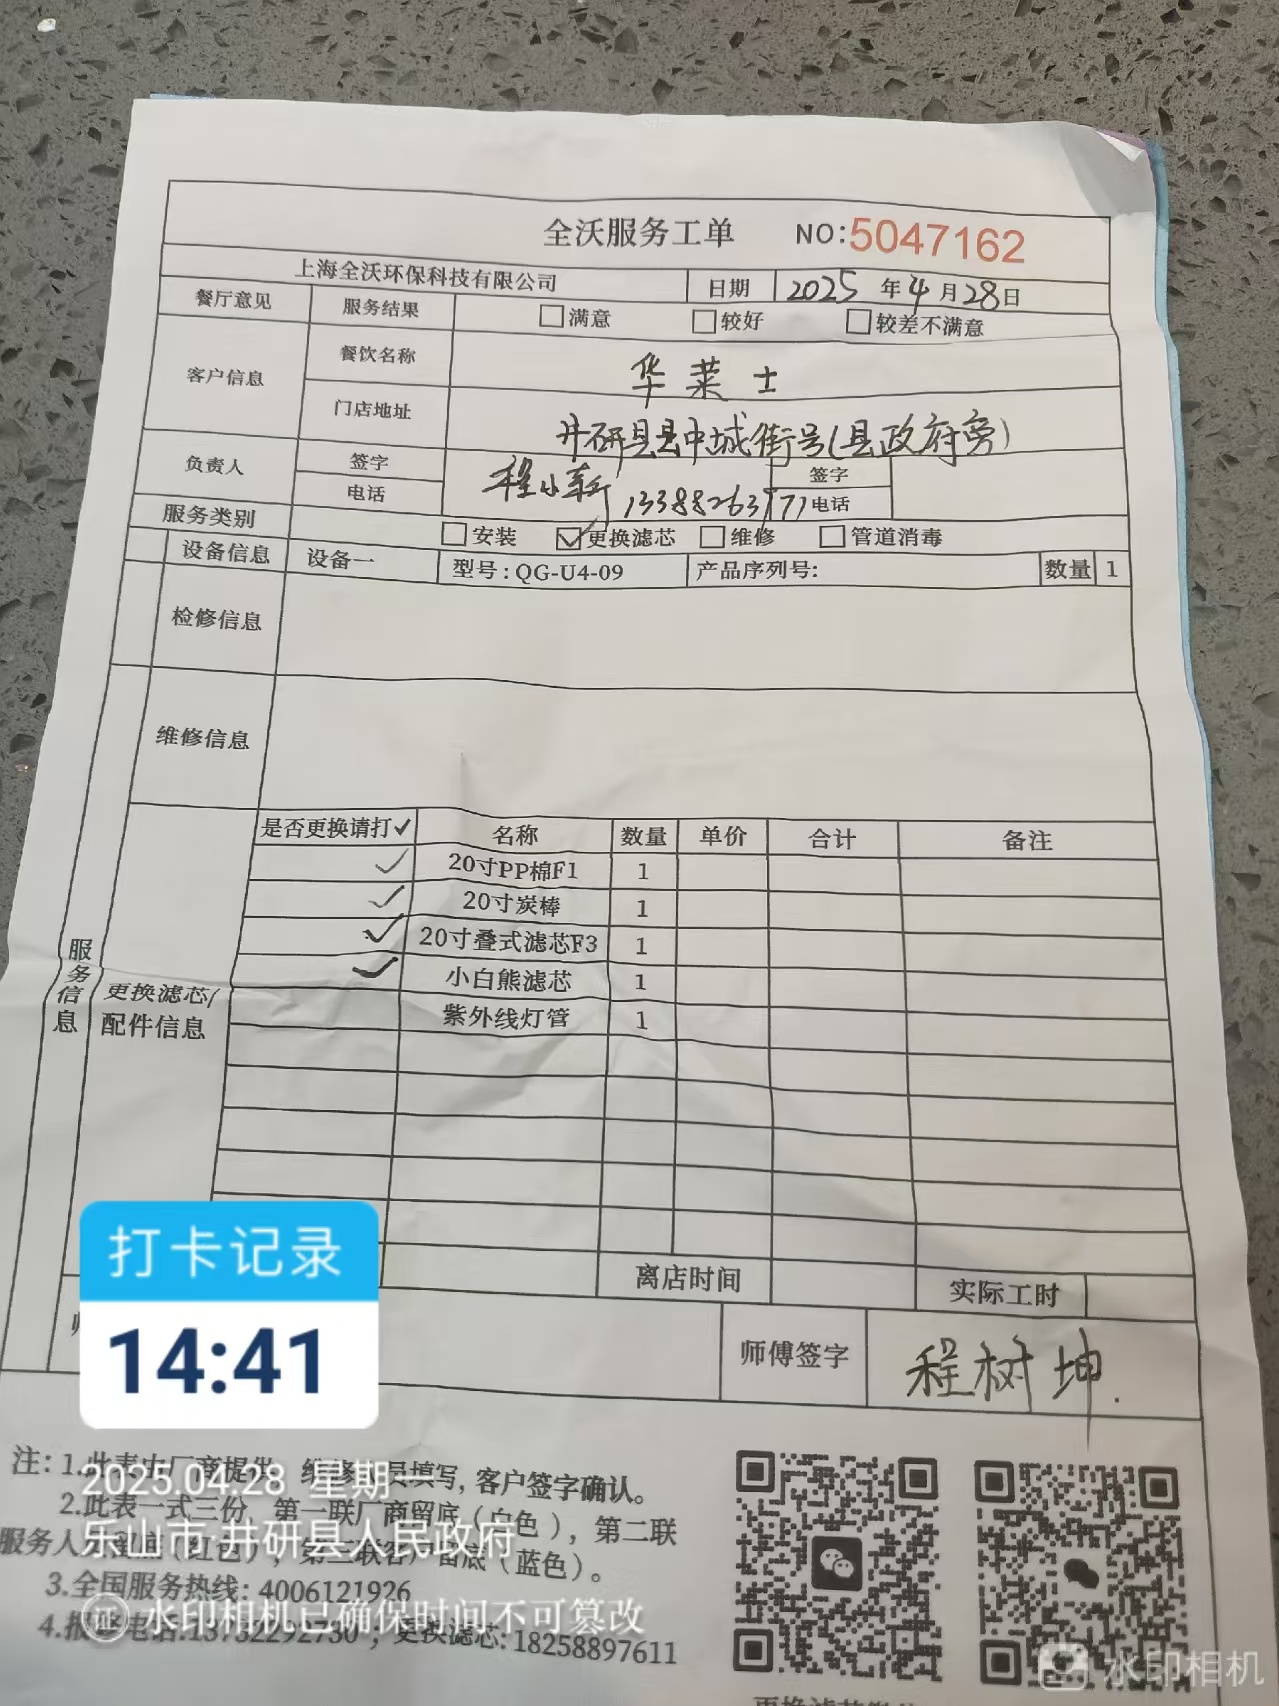 全沃服务工单 NO:5047162
上海全沃环保科技有限公司 日期 2025 年 4 月 28 日
餐厅意见 服务结果 满意 较好 较差不满意
客户信息 餐饮名称 华莱士
门店地址 井研县县中城街号(县政府旁)
负责人 签字 签字
电话 电话
服务类别 安装 更换滤芯 维修 管道消毒
设备信息 设备一 型号:QG-U4-09 产品序列号: 数量 1
检修信息
维修信息
服务信息
更换滤芯/
配件信息
是否更换请打✓ 名称 数量 单价 合计 备注
✓ 20寸PP棉F1 1
✓ 20寸炭棒 1
✓ 20寸叠式滤芯F3 1
✓ 小白熊滤芯 1
紫外线灯管 1
离店时间 实际工时
师傅签字 程树坤.
打卡记录
14:41
2025.04.28 星期一
乐山市·井研县人民政府
水印相机已确保时间不可篡改
注: 1.此表由厂商提供, 维修人员填写, 客户签字确认。
2.此表一式三份, 第一联厂商留底(白色), 第二联
服务人员留底(红色), 第三联客户留底(蓝色)。
3.全国服务热线: 4006121926
4.报修电话:13732292730; 更换滤芯: 18258897611
水印相机